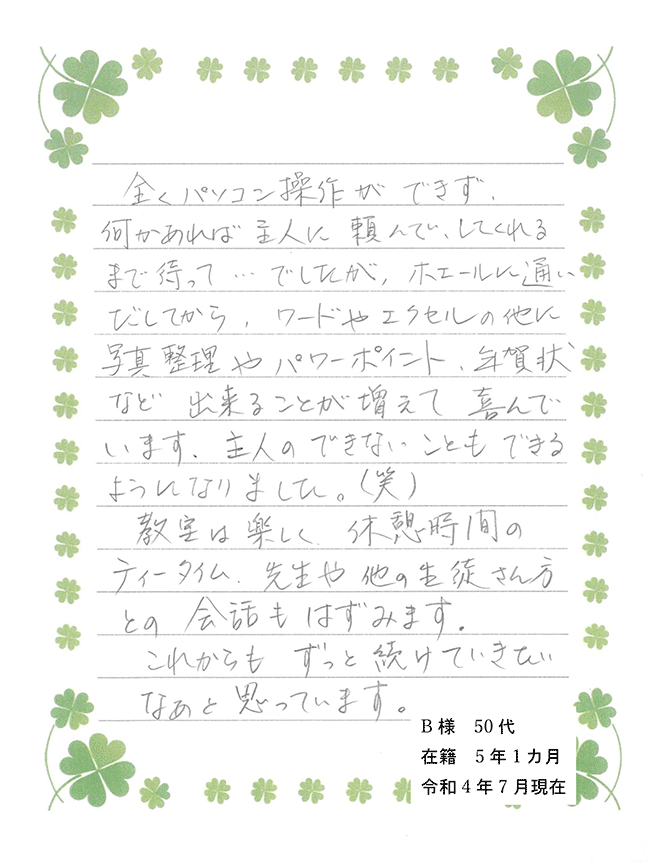 全くパソコン操作が できず、
何かあれば 主人に 頼んで、してくれる
まで待って … でしたが、ホエールに通い
だしてから、ワードやエクセルの他に
写真整理や パワーポイント、年賀状
など 出来ることが増えて 喜んで
います。主人のできないこともできる
ようになりました。(笑)
教室は楽しく、休憩時間の
ティータイム、先生や他の生徒さん方
との 会話もはずみます。
これからも ずっと続けていきたい
なぁと思っています。
B様 50代
在籍 5年1カ月
令和4年7月現在